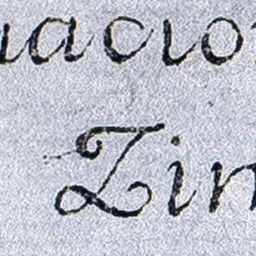 uacio
Zin